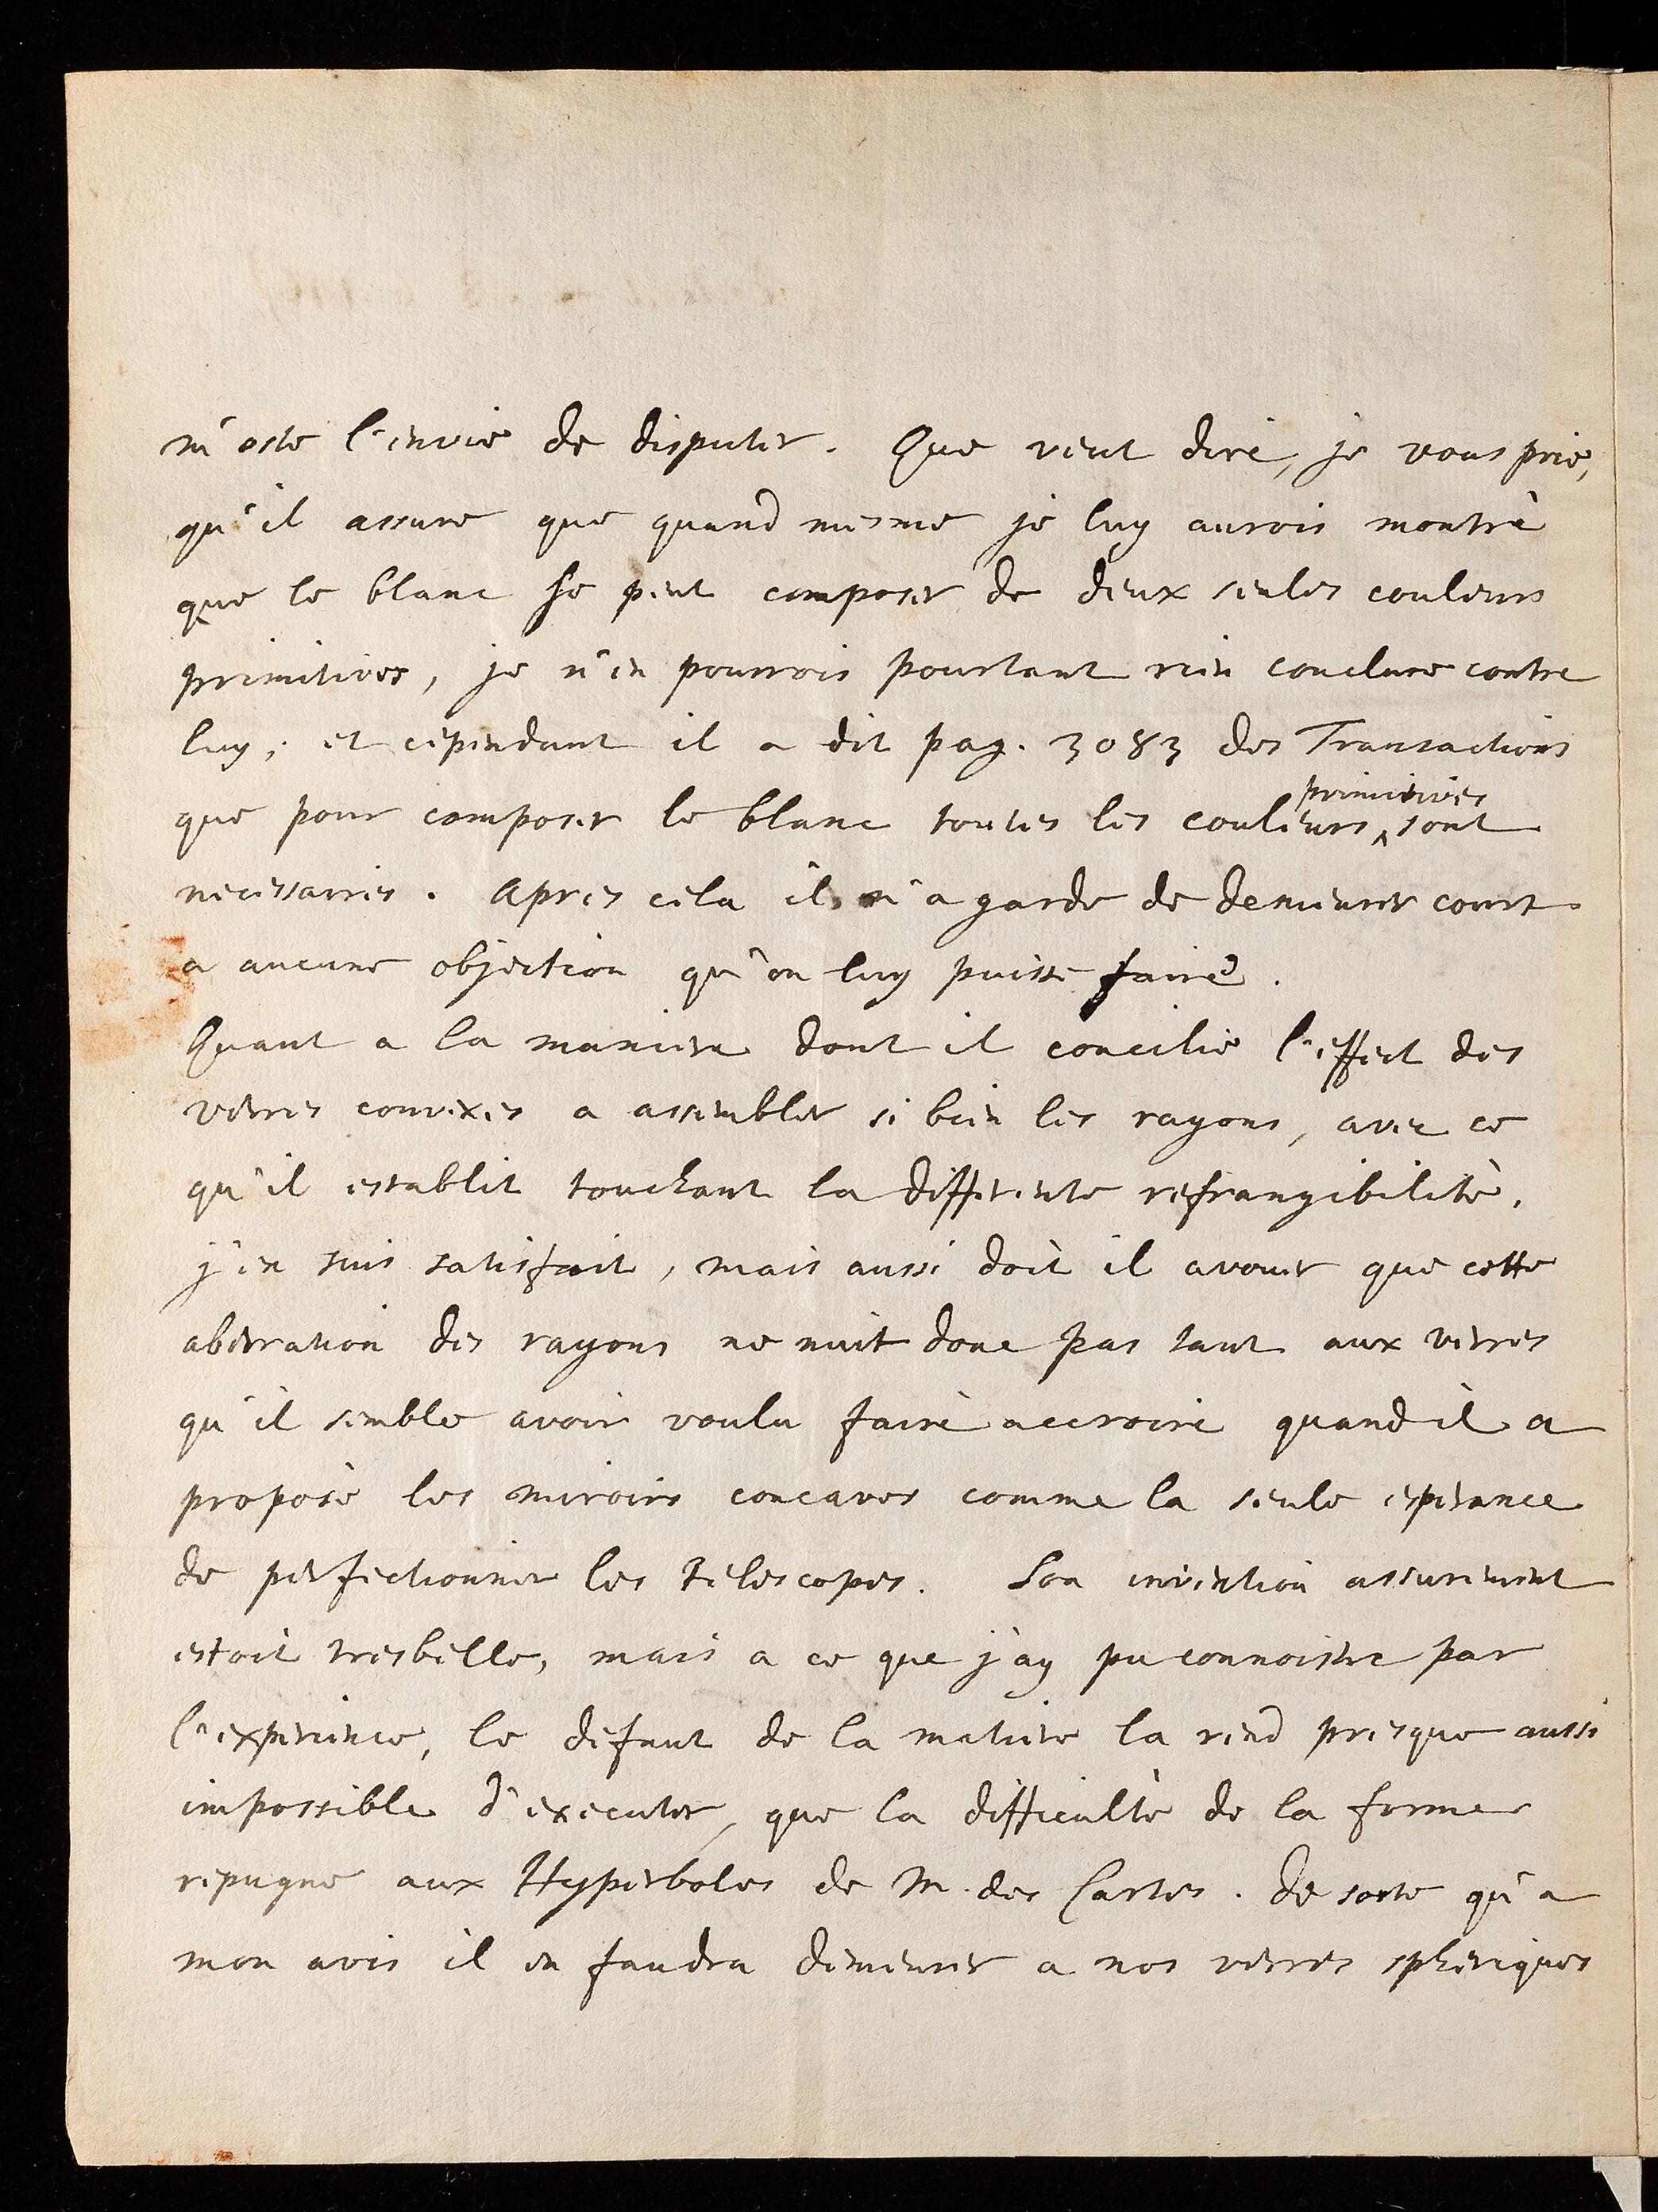 m'oste l'envie de disputer. Que veut dire, je vous prie,
qu'il assure que quand mesme je luy aurois montrè
que le blanc se peut composer de deux seules couleurs
primitives, je n'en pourrois pourtant rien conclure contre
luy; et cependant il a dit pag. 3083 des Transactions
primitives
que pour composer le blanc toutes les couleurs ‸ sont
necessaires. Apres cela il n'a garde de demeurer court
a aucune objection qu'on luy puisse faire.
Quant a la maniere dont il concilie l'effect des
verres convexes a assembler si bien les rayons, avec ce
qu'il establit touchant la differente refrangibilitè,
j'en suis satisfait, mais aussi doit il avouer que cette
aberration des rayons ne nuit donc pas tant aux verres
qu'il semble avoir voulu faire accroire quand il a
proposè les miroirs concaves comme la seule esperance
de perfectionner les telescopes. Son invention assurement
estoit tresbelle, mais a ce que j'ay pu connoistre par
l'experience, le defaut de la matiere la rend presque aussi
impossible d'executer, que la difficultè de la forme
repugne aux Hyperboles de M. des Cartes. de sorte qu'a
mon avis il en faudra demeurer a nos verres spheriques